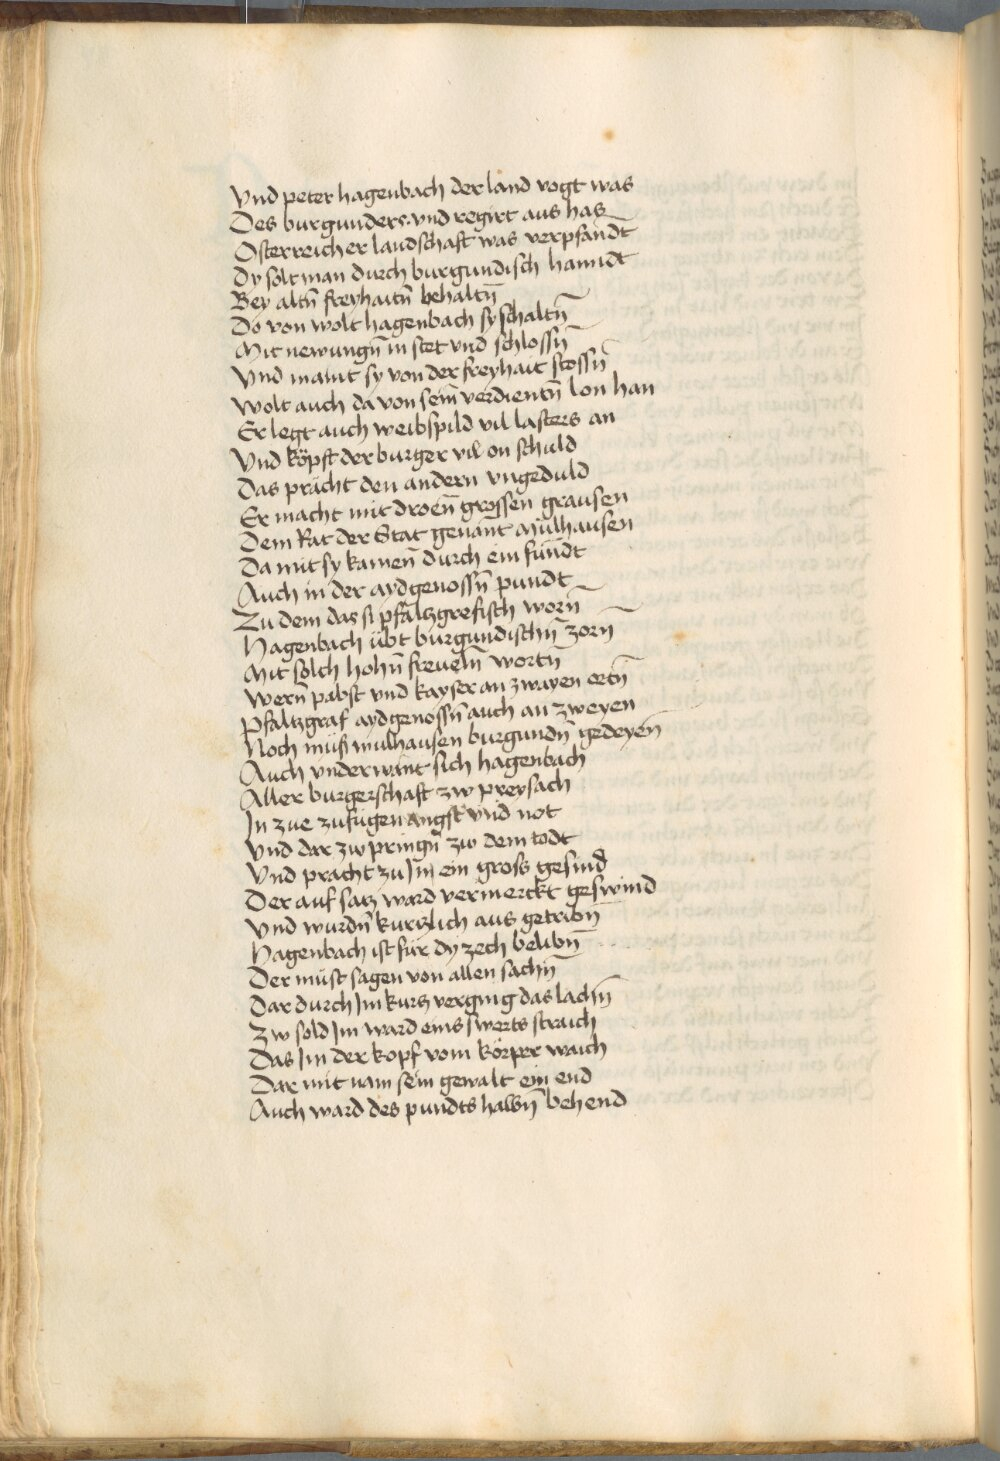 Vnd peter hagenbach der land vogt was
Des burgunders. vnd regirt aus has
Osterreicher landschaft was verpfandt
Dy solt man durch burgundisch hanndt
Bey altn̄ freyhaitn̄ behaltn̄
Do von wolt hagenbach sy schaltn̄
Mit newungn̄ in stet vnd schlossn̄
Vnd maint sy von der freyhait stossn̄
Wolt auch da von sein̄ verdientn̄ lon han
Er legt auch weibspild vil lasters an
Vnd köpft der burger vil on schuld
Das pracht den andern vngeduld
Er macht mit droen̄ grossen grausen
Dem Rat der Stat genant Mülhausen
Da mit sy kamen̄ durch ein fündt
Auch in der aydgenossn̄ pundt
Zu dem das si pfaltzgrefisch worn̄
Hagenbach übt burgundischn̄ zorn
Mit solch hohn̄ freueln̄ wortn̄
Wern̄ pabst vnd kayser an zwayen ortn̄
Pfaltzgraf aydgenossn̄ auch an zweyen
Noch müs mülhausen burgundn̄ gedeyen̄
Auch vnderwant sich hagenbach
Aller burgerschaft zw preysach
In zue zufugen angst vnd not
Vnd dar zw pringn̄ zw dem todt
Vnd pracht zu Im ein gross gesind
Der auf satz ward vermerckt geswind
Vnd wurdn̄ kurtzlich aus getribn̄
Hagenbach ist für dy zech belibn̄
Der müst sagen von allen sachn̄
Dar durch Im kurtz verging das lachn̄
Zw sold Im ward eins swerts straich
Das Im der kopf vom körper waich
Dar mit nam sein gewalt ein end
Auch ward des pundts halbn̄ behend